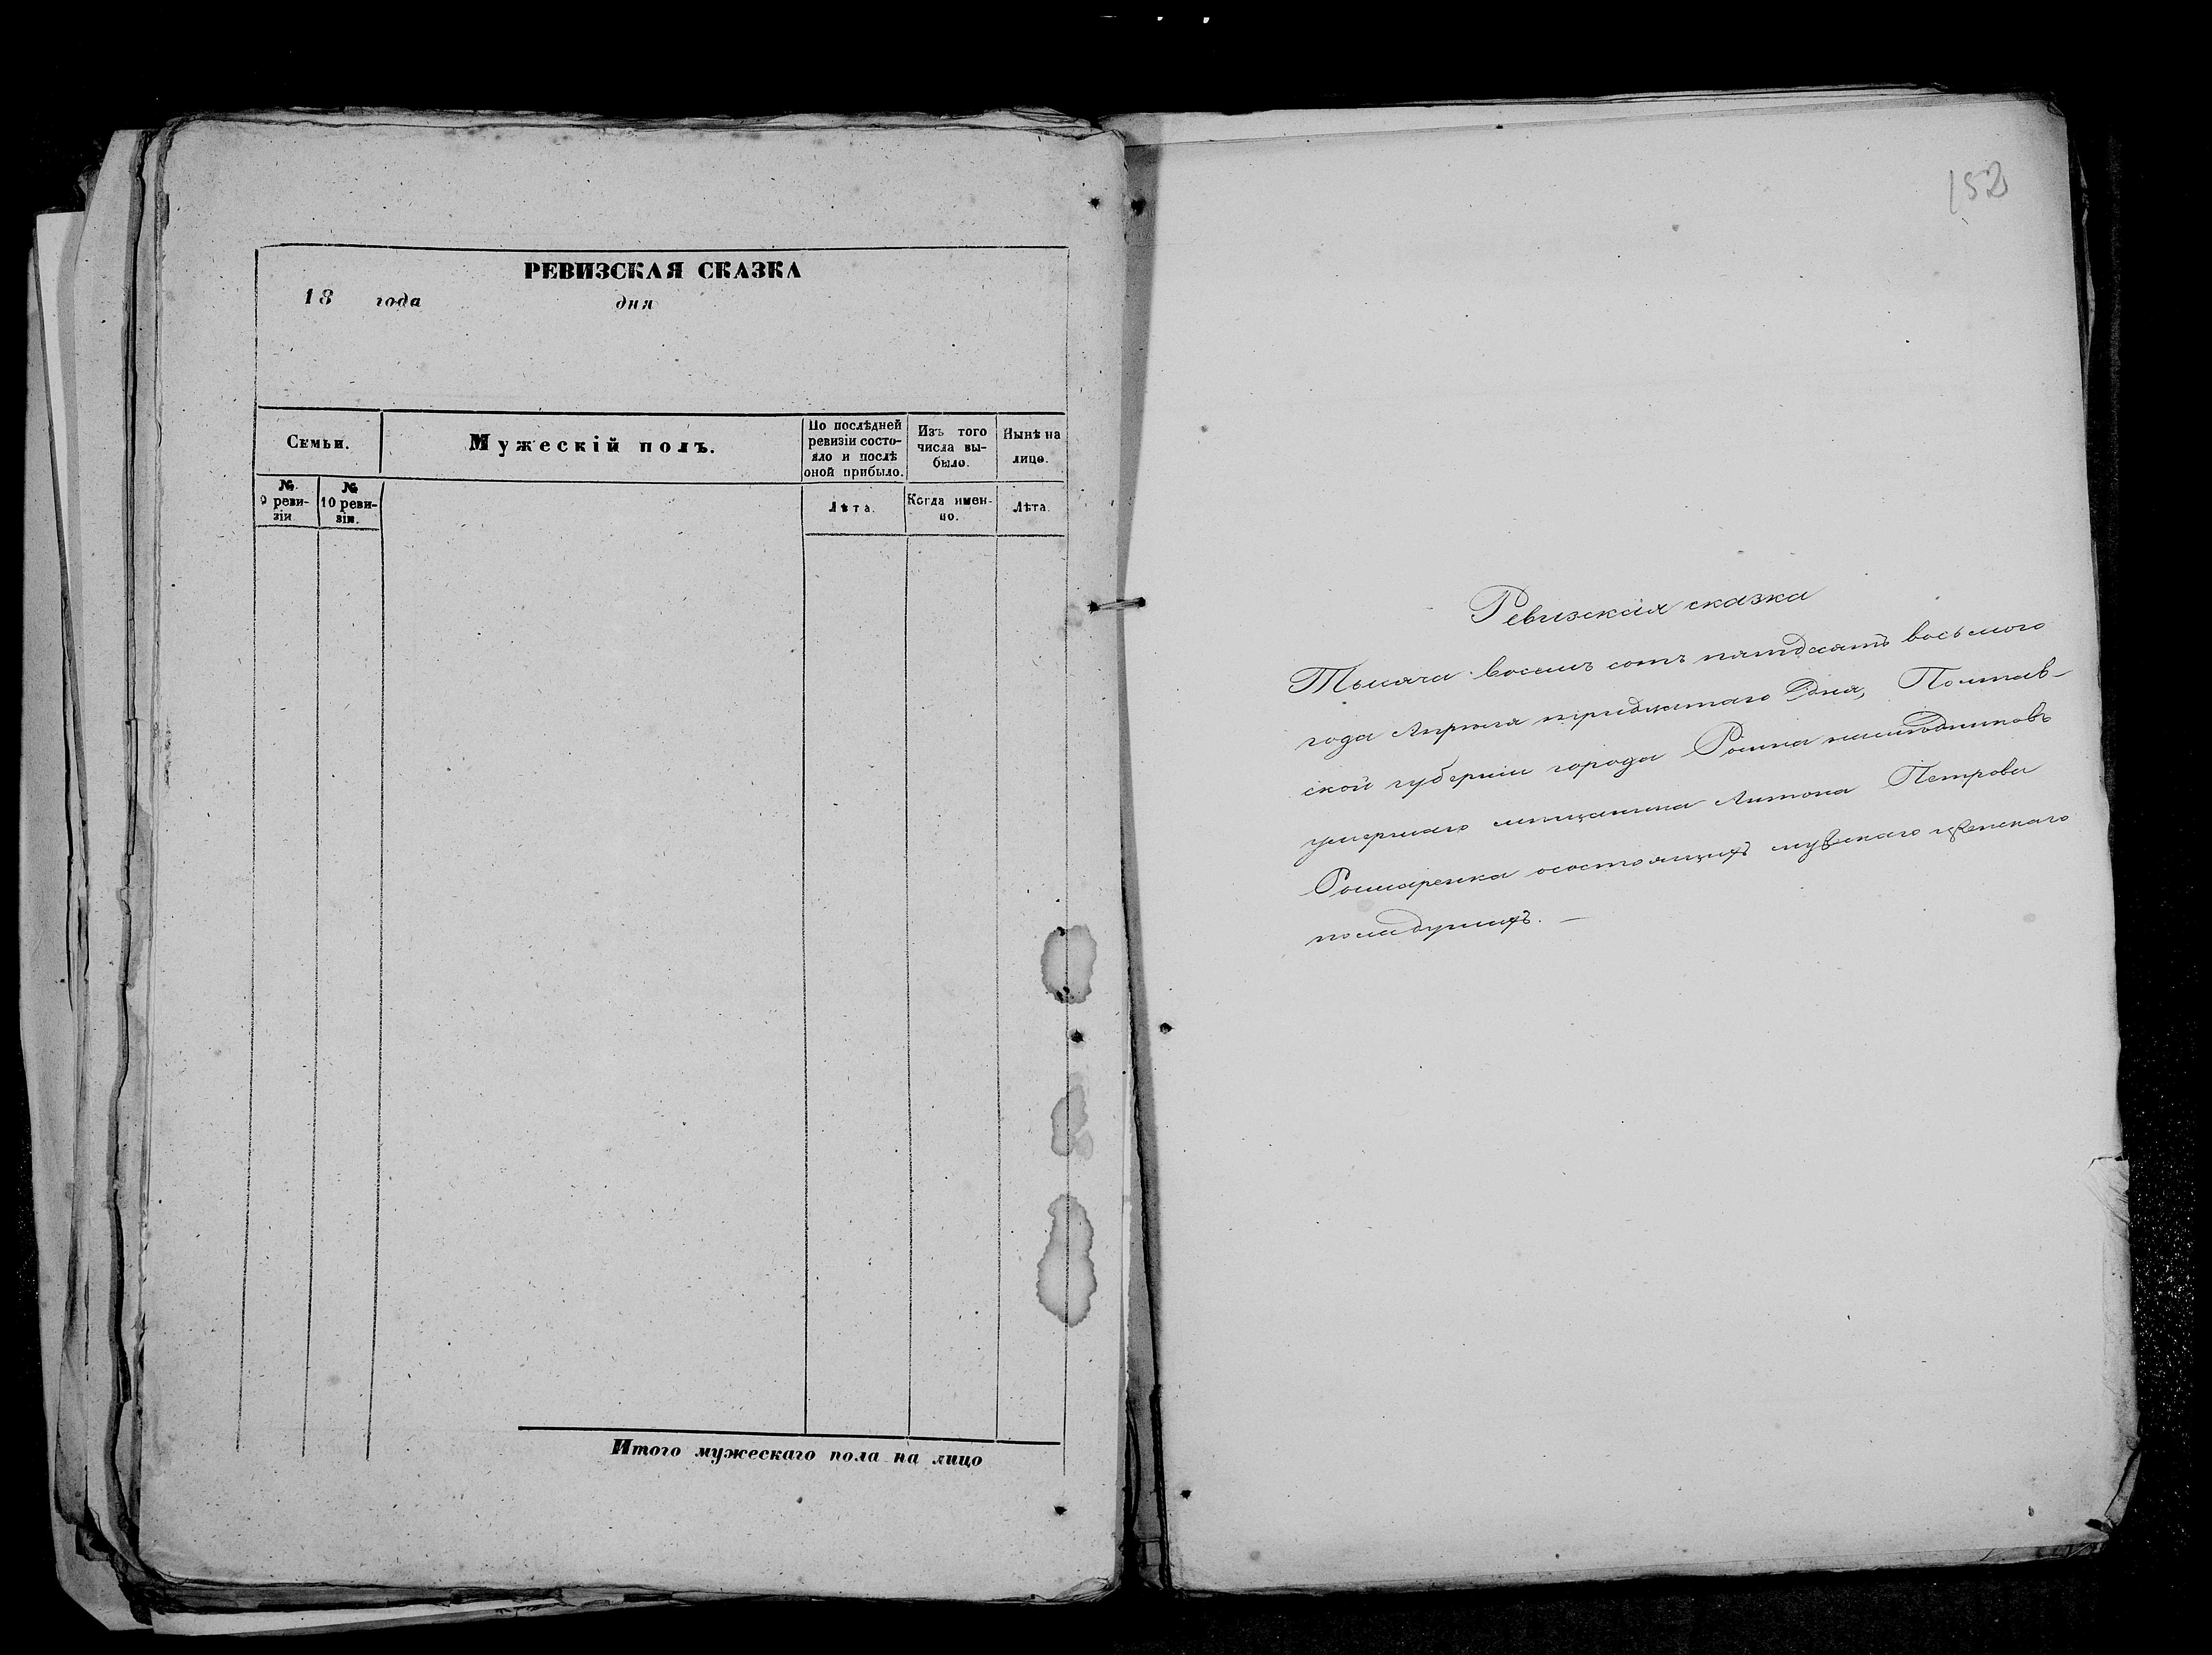 РЕВИЗСКАЯ СКАЗКА
18 года дня
Семьи.
Мужескій полъ.
По послѣдней ревизіи состо-
яло и послѣ
оной прибыло.
Изъ того
числа вы-
было.
Нынѣ на
лицо.
№
9 реви-
зіи
№
10 реви-
зіи.
Лѣта.
Когда имен-
но.
Лѣта.
Итого мужескаго пола на лицо
152
Ревизкая сказка
Тысяча восемъ сотъ пятдесятъ восьмого
года Апрѣля тридцатаго дня, Полтав-
ской губерніи города Ромна наслѣдниковъ
умершаго мѣщанина Антона Петрова
осостоящихъ мужскаго иженскаго
пола душахъ. —